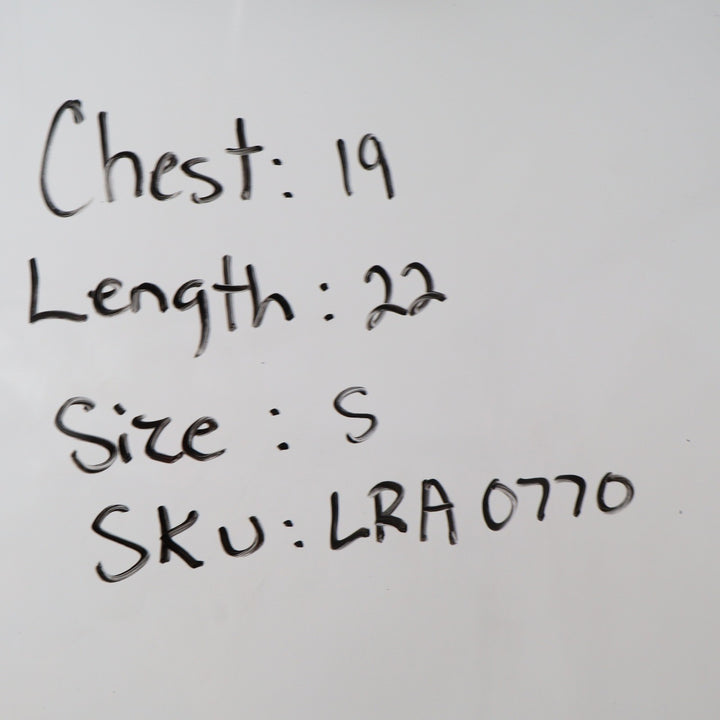 Chest: 19
Length: 22
Size: S
SKU: LRA 0770